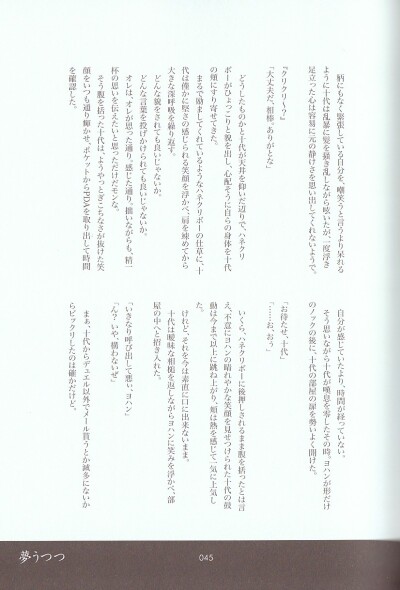 柄にもなく緊張している自分を、嘲笑うと言うより呆れる
ように十代は乱暴に髪を掻き乱しながら呟いたが、一度浮き
足立った心は容易に元の静けさを思い出してくれないようで。
『クリクリ〜？』
「大丈夫だ、相棒。ありがとな」
どうしたものかと十代が天井を仰いだ辺りで、ハネクリ
ボーがひょっこりと貌を出し、心配そうに自らの身体を十代
の頬にすり寄せてきた。
まるで励ましてくれているようなハネクリボーの仕草に、十
代は僅かに堅さの感じられる笑顔を浮かべ、肩を竦めてから
大きな深呼吸を繰り返す。
どんな貌をされても良いじゃないか。
どんな言葉を投げかけられても良いじゃないか。
オレは、オレが思った通り、感じた通り、拙いながらも、精一
杯の思いを伝えたいと思っただけだモンな。
そう腹を括った十代は、ようやっとぎこちなさが抜けた笑
顔をいつも通り輝かせ、ポケットからPDAを取り出して時間
を確認した。
自分が感じていたより、時間が経っていない。
そう思いながら十代が嘆息を零したその時、ヨハンが形だけ
のノックの後に、十代の部屋の扉を勢いよく開けた。
「お待たせ、十代」
「……お、おう」
いくら、ハネクリボーに後押しされるまま腹を括ったとは言
え、不意にヨハンの晴れやかな笑顔を見せつけられた十代の鼓
動は今まで以上に跳ね上がり、頬は熱を感じて一気に上気し
た。
けれど、それを今は素直に口に出来ないまま、
十代は曖昧な相槌を返しながらヨハンに笑みを浮かべ、部
屋の中へと招き入れた。
「いきなり呼び出して悪い、ヨハン」
「ん？ いや、構わないぜ」
まぁ、十代からデュエル以外でメール貰うとか滅多にないか
らビックリしたのは確かだけど。
夢うつつ
045